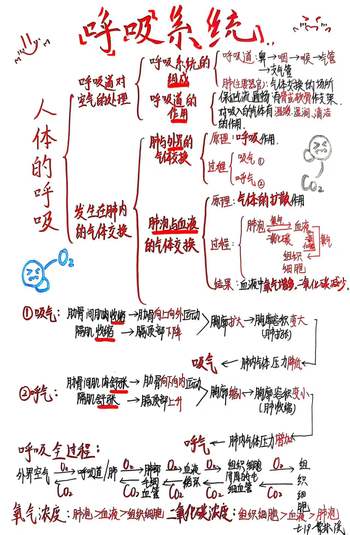 呼吸系统
人体的呼吸
呼吸道对空气的处理
呼吸系统的组成
呼吸道：鼻→咽→喉→气管→支气管
肺(主要器官)：气体交换的场所
呼吸道的作用
保证气流通畅：有骨或软骨作支架
对吸入的气体有温暖、湿润、清洁的作用.
发生在肺内的气体交换
肺与外界的气体交换
原理：呼吸作用
过程
吸气①
呼气②
肺泡与血液的气体交换
原理：气体的扩散作用
过程：
肺泡 氧气 二氧化碳 血液
组织细胞
结果：血液中氧气增多,二氧化碳减少.
O₂
CO₂
①吸气：
肋骨间肌肉收缩→肋骨向上向外运动
膈肌收缩→膈顶部下降
胸廓扩大→胸廓容积变大(肺扩张)
吸气←肺内气体压力降低
②呼气：
肋骨间肌肉舒张→肋骨向下向内运动
膈肌舒张→膈顶部上升
胸廓缩小→胸廓容积变小(肺收缩)
呼气←肺内气体压力增加
呼吸全过程：
外界空气 O₂ CO₂ 呼吸道/肺 O₂ CO₂ 肺部毛细血管 O₂ CO₂ 血液 O₂ CO₂ 组织细胞周围的毛细血管 O₂ CO₂ 组织细胞
氧气浓度：肺泡>血液>组织细胞 二氧化碳浓度：组织细胞>血液>肺泡